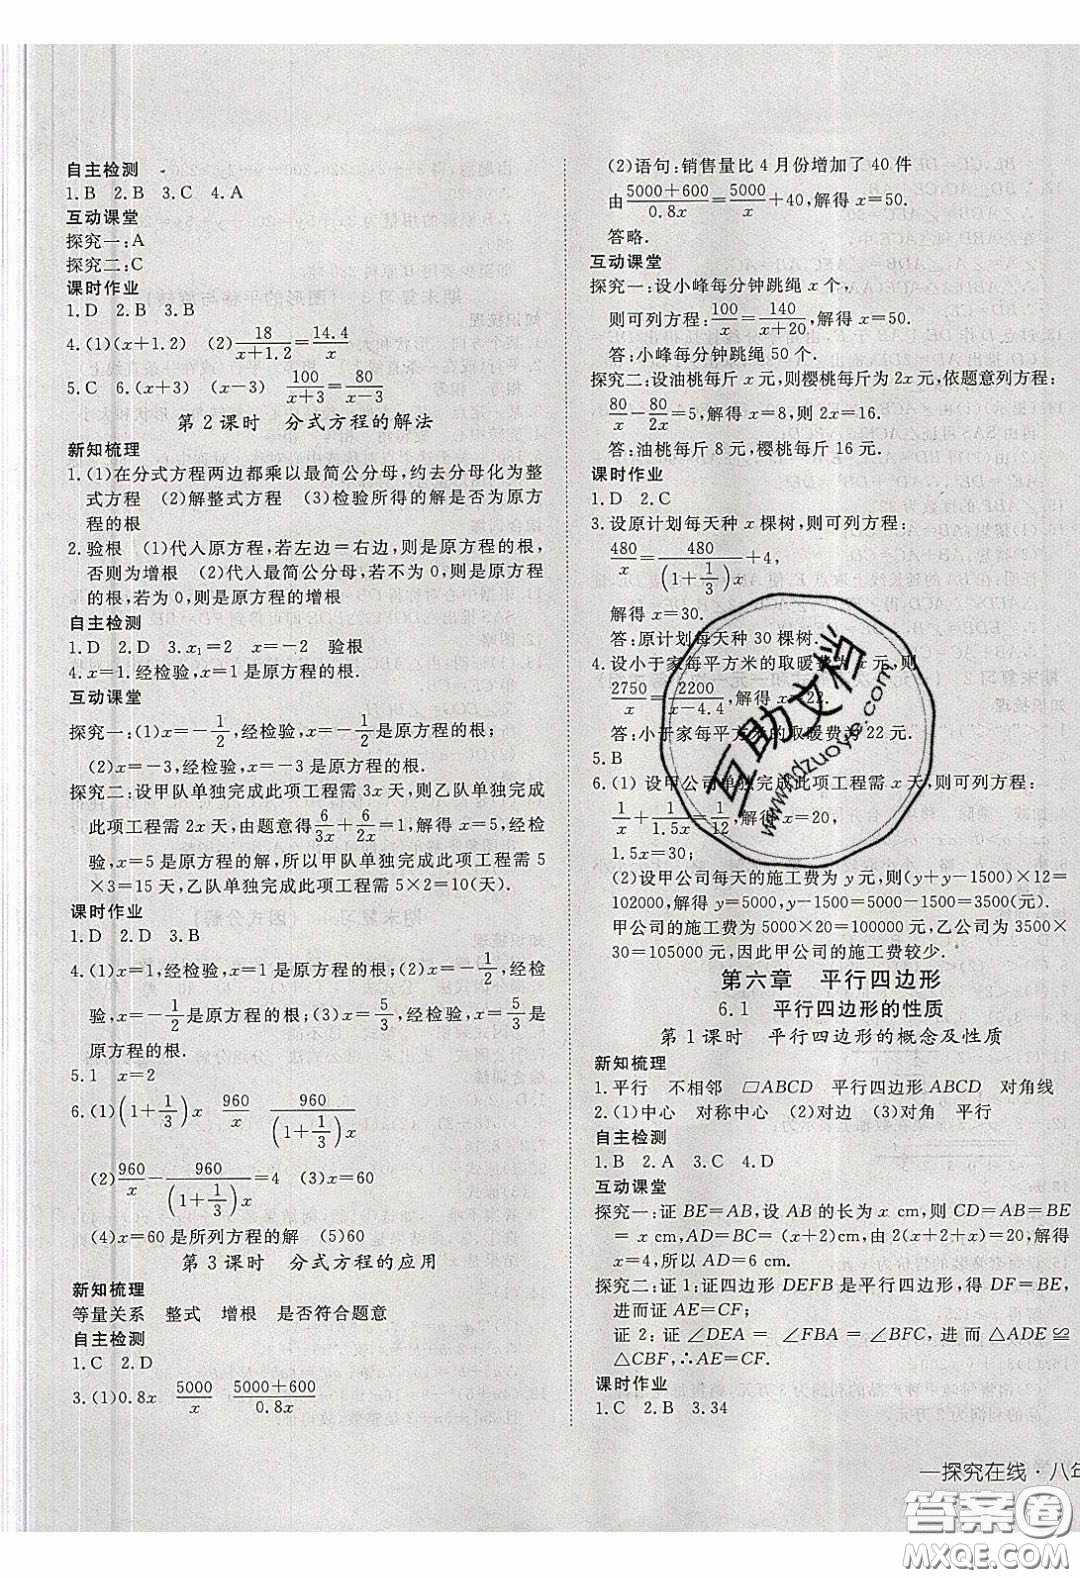 自主检测
1.B 2.B 3.C 4.A
互动课堂
探究一:A
探究二:C
课时作业
1.D 2.D 3.B
4.(1)(x+1.2) (2)18/(x+1.2)=14.4/x
5.C 6.(x+3) (x-3) 100/(x+3)=80/(x-3)
第2课时 分式方程的解法
新知梳理
1.(1)在分式方程两边都乘以最简公分母,约去分母化为整
式方程 (2)解整式方程 (3)检验所得的解是否为原方
程的根
2.验根 (1)代人原方程,若左边=右边,则是原方程的根,
否则为增根 (2)代人最简公分母,若不为0,则是原方程
的根,若为0,则是原方程的增根
自主检测
1.D 2.D 3.x₁=2 x=-2 验根
4.x=1.经检验,x=1是原方程的根.
互动课堂
探究一:(1)x=-1/2,经检验,x=-1/2是原方程的根;
(2)x=-3.经检验,x=-3是原方程的根.
探究二:设甲队单独完成此项工程需3x天,则乙队单独完成
此项工程需2x天,由题意得6/3x+6/2x=1,解得x=5,经检
验,x=5是原方程的解,所以甲队单独完成此项工程需5
×3=15天,乙队单独完成此项工程需5×2=10(天).
课时作业
1.D 2.D 3.B
4.(1)x=1,经检验,x=1是原方程的根;(2)x=-1/2,经检
验,x=-1/2是原方程的根;(3)x=5/3,经检验,x=5/3是
原方程的根.
5.1 x=2
6.(1)(1+1/3)x 960/x 960/((1+1/3)x)
(2)960/x-960/((1+1/3)x)=4 (3)x=60
(4)x=60是所列方程的解 (5)60
第3课时 分式方程的应用
新知梳理
等量关系 整式 增根 是否符合题意
自主检测
1.C 2.D
3.(1)0.8x 5000/x (5000+600)/0.8x
(2)语句:销售量比4月份增加了40件
由(5000+600)/0.8x=5000/x+40,解得x=50.
答略.
互动课堂
探究一:设小峰每分钟跳绳x个,
则可列方程:100/x=140/(x+20),解得x=50.
答:小峰每分钟跳绳50个.
探究二:设油桃每斤x元,则樱桃每斤为2x元,依题意列方程:
80/x-80/2x=5,解得x=8,则2x=16.
答:油桃每斤8元,樱桃每斤16元.
课时作业
1.D 2.C
3.设原计划每天种x棵树,则可列方程:
480/x=480/((1+1/3)x)+4,
解得x=30.
答:原计划每天种30棵树.
4.设小于家每平方米的取暖费为x元,则
2750/x=2200/(x-4.4),解得x=22.
答:小于家每平方米的取暖费为22元.
5.B
6.(1)设甲公司单独完成此项工程需x天,则可列方程:
1/x+1/1.5x=1/12,解得x=20,
1.5x=30;
(2)设甲公司每天的施工费为y元,则(y+y-1500)×12=
102000,解得y=5000,y-1500=5000-1500=3500(元).
甲公司的施工费为5000×20=100000元,乙公司为3500×
30=105000元,因此甲公司的施工费较少.
第六章 平行四边形
6.1 平行四边形的性质
第1课时 平行四边形的概念及性质
新知梳理
1.平行 不相邻 □ABCD 平行四边形ABCD 对角线
2.(1)中心 对称中心 (2)对边 (3)对角 平行
自主检测
1.B 2.A 3.C 4.D
互动课堂
探究一:证BE=AB,设AB的长为x cm,则CD=AB=BE
=x cm,AD=BC=(x+2)cm.由2(x+2+x)=20,解得
x=4,所以AD=6 cm.
探究二:证1:证四边形DEFB是平行四边形,得DF=BE,
进而证AE=CF;
证2:∠DEA=∠FBA=∠BFC,进而△ADE≌
△CBF,∴AE=CF.
课时作业
1.C 2.B 3.34
—探究在线·八年
互助文档
www.hdzuoye.com
答案圈
MXQE.COM